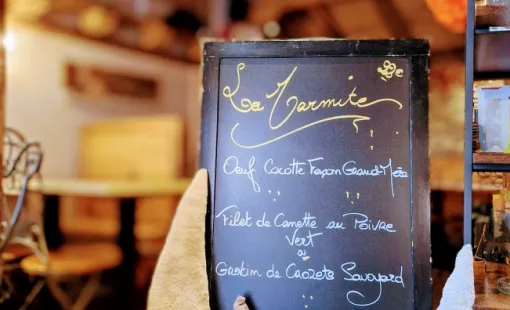 La Marmite
Oeuf Cocotte Façon Grand-Mère
Filet de Canette au Poivre
Vert
ou
Gratin de Crozets Savoyard